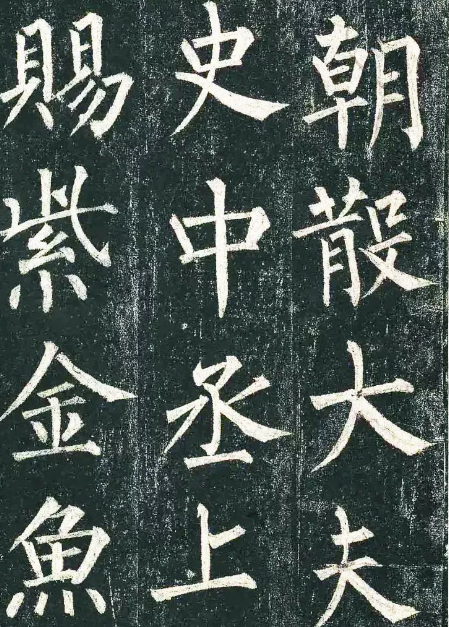 朝散大夫
史中丞上
賜紫金魚